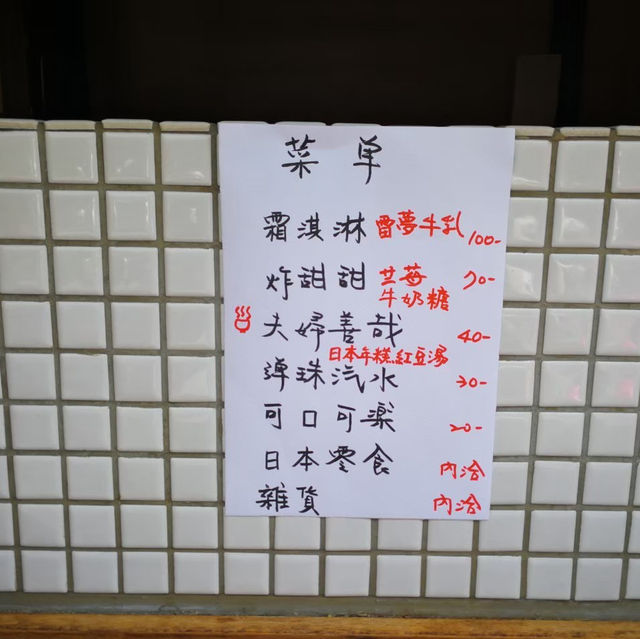 菜單
霜淇淋 雷夢牛乳 100-
炸甜甜 草莓 70-
牛奶糖
夫婦善哉 40-
日本年糕紅豆湯
彈珠汽水 30-
可口可樂 20-
日本零食 內洽
雜貨 內洽